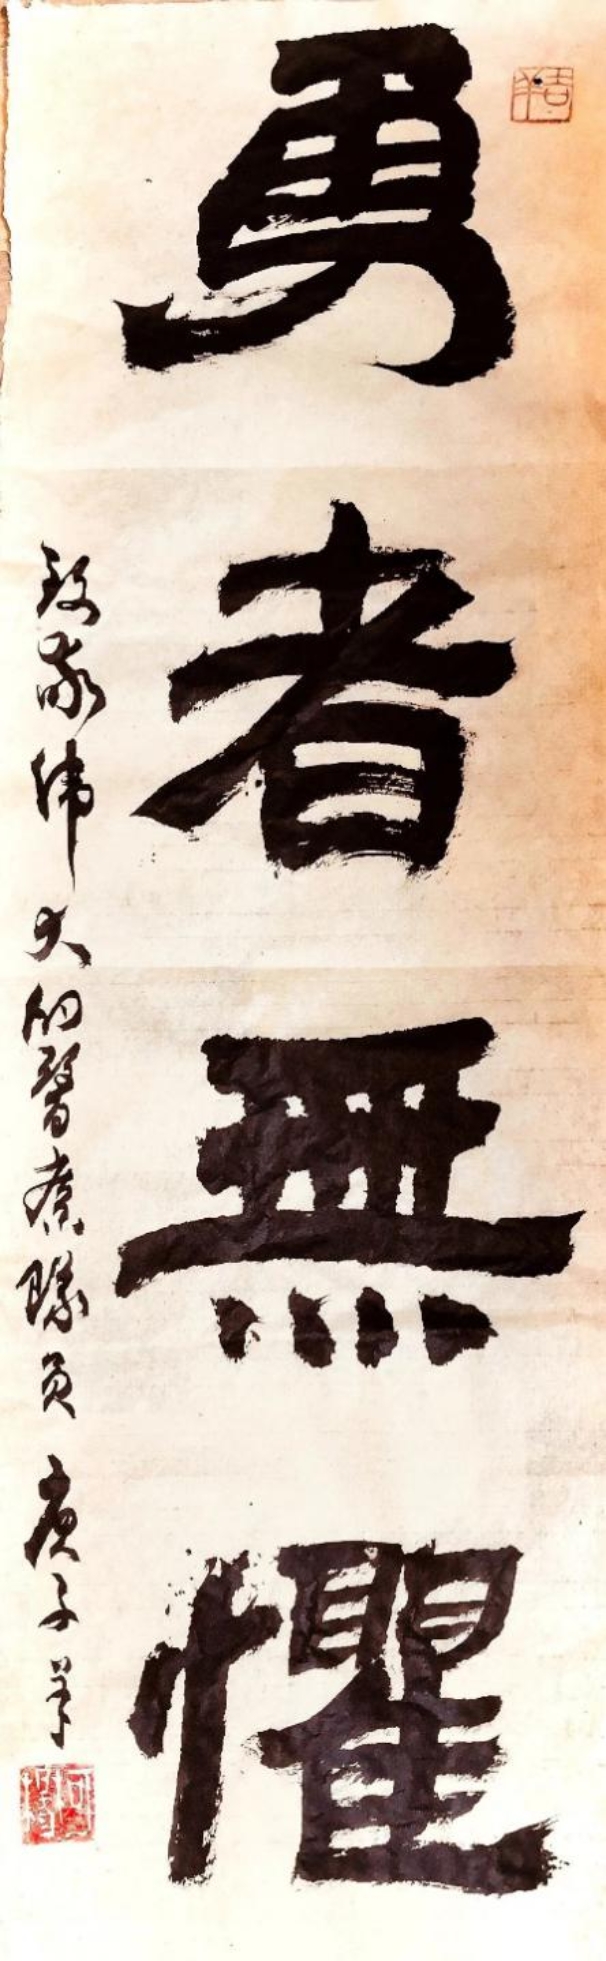 勇者無懼
致敬偉大的醫療隊員 庚子